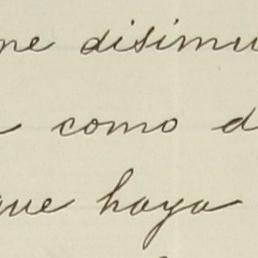 me disimu
como d
que haya